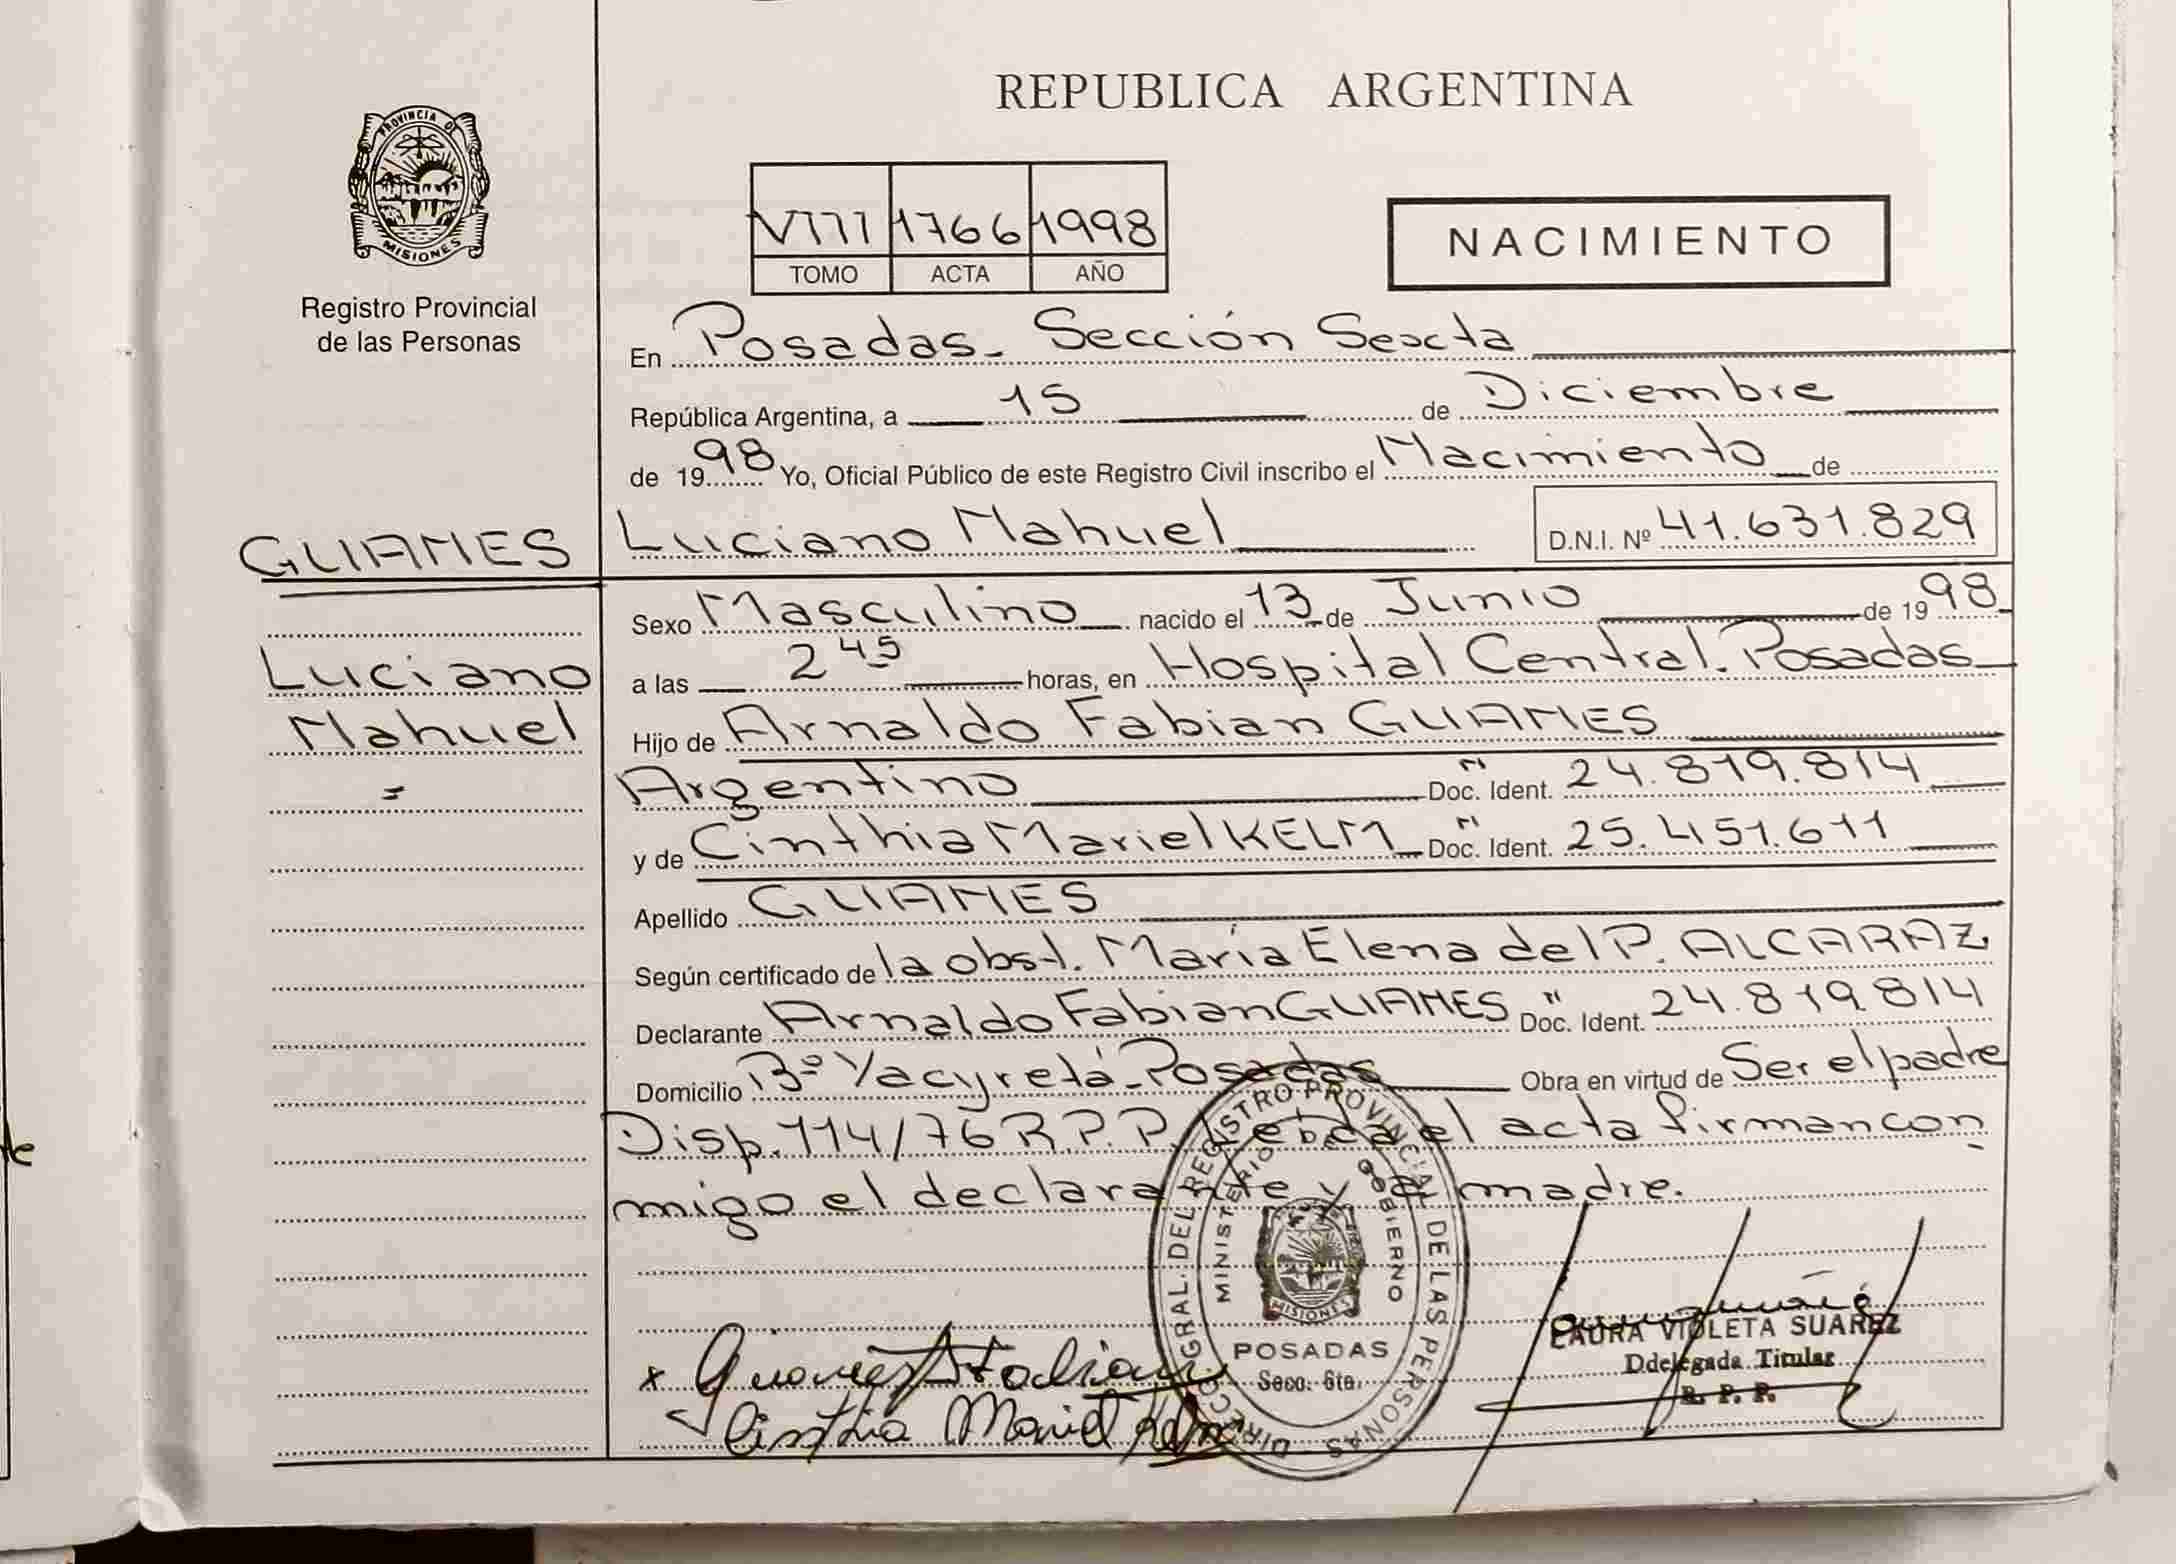 REPUBLICA ARGENTINA
PROVINCIA DE
MISIONES
Registro Provincial
de las Personas
VIII 1766 1998
TOMO ACTA AÑO
NACIMIENTO
En Posadas - Sección Sexta
República Argentina, a 15 de Diciembre
de 1998 Yo, Oficial Público de este Registro Civil inscribo el Nacimiento de
GUANES Luciano Nahuel D.N.I. Nº 41.631.829
Sexo Masculino nacido el 13 de Junio de 1998
Luciano a las 2 45 horas, en Hospital Central. Posadas
Nahuel Hijo de Arnaldo Fabian GUANES
Argentino Doc. Ident. N 24.819.814
y de Cinthia Mariel KELM Doc. Ident. N 25.451.611
Apellido GUANES
Según certificado de la obst. María Elena del P. ALCARAZ
Declarante Arnaldo Fabian GUANES Doc. Ident. N 24.819.814
Domicilio Bº Yacyretá - Posadas Obra en virtud de Ser el padre
Disp. 114/76 R.P.P. Leída el acta firman con
migo el declarante y la madre.
DIRECC GRAL. DEL REGISTRO PROVINCIAL DE LAS PERSONAS
MINISTERIO GOBIERNO
MISIONES
POSADAS
Secc. 6ta.
Guanes A Fabian
Cinthia Mariel Kelm
LAURA VIOLETA SUAREZ
Ddelegada Titular
R. P. P.